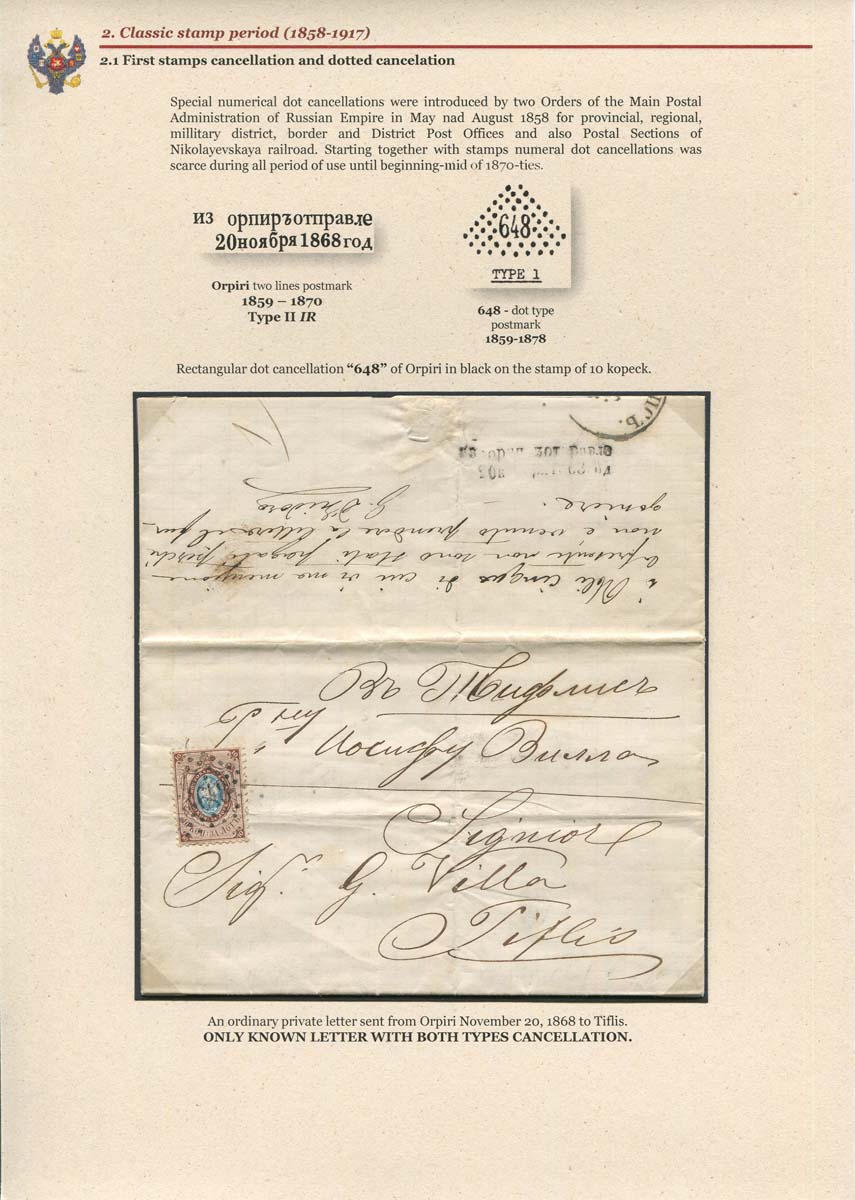 2. Classic stamp period (1858-1917)
2.1 First stamps cancellation and dotted cancelation
Special numerical dot cancellations were introduced by two Orders of the Main Postal
Administration of Russian Empire in May nad August 1858 for provincial, regional,
millitary district, border and District Post Offices and also Postal Sections of
Nikolayevskaya railroad. Starting together with stamps numeral dot cancellations was
scarce during all period of use until beginning-mid of 1870-ties.
из орпиръотправле
20ноября1868год
648
TYPE 1
Orpiri two lines postmark
1859 – 1870
Type II IR
648 - dot type
postmark
1859-1878
Rectangular dot cancellation “648” of Orpiri in black on the stamp of 10 kopeck.
G. D'Isidoro
gomere.
non è venuto prendere la
la presente non sono stati pagati perchè
di cui vi ma menzione
Въ Тифлисъ
Г ну
Иосифу Вилла
Signior
Sigr. G. Villa
Tiflis
An ordinary private letter sent from Orpiri November 20, 1868 to Tiflis.
ONLY KNOWN LETTER WITH BOTH TYPES CANCELLATION.